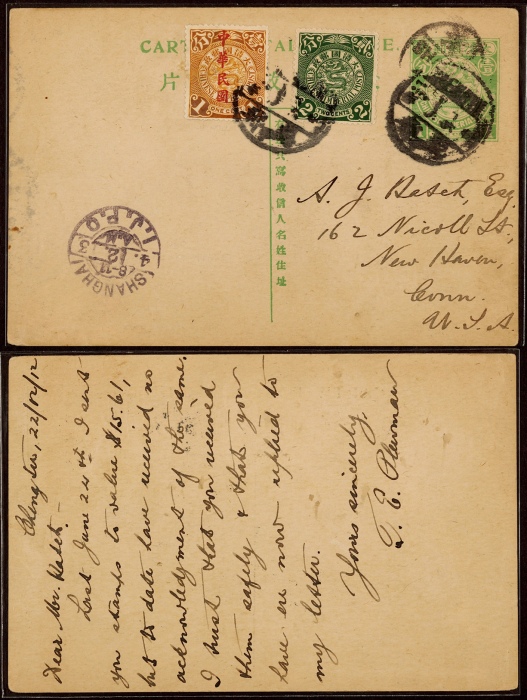 CARTE POSTALE
片
中華民國
1 ONE CENT
2 TWO CENTS
名姓住址
SHANGHAI
I.J.P.O
A. J. Hatch, Esq
162 Nicoll St.,
New Haven,
Conn.
U.S.A.
Chengtu, 22/02/12
Dear Mr. Hatch -
Last June 24th I sent
you stamps to value $15.61,
but to date have received no
acknowledgment of the same.
I trust that you received
them safely & that you
have ere now replied to
my letter.
Yours sincerely
E. Plewman